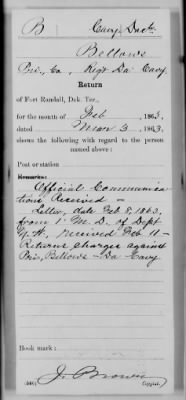 B Cavy Dak.
Bellows
Pri, Co., Reg't Da Cavy.
Return
of Fort Randall, Dak. Ter.,
for the month of Feb, 1863,
dated Mar 3, 1863
shows the following with regard to the person
named above:
Post or station
Remarks:
Official Communica-
tions Received —
Letter, date Feb 8, 1863,
from 1" M. D. of Dept
N.W. received Feb 11 —
Returns charges against
Pri, Bellows — Da - Cavy
Book mark:
J. Brown
Copyist.